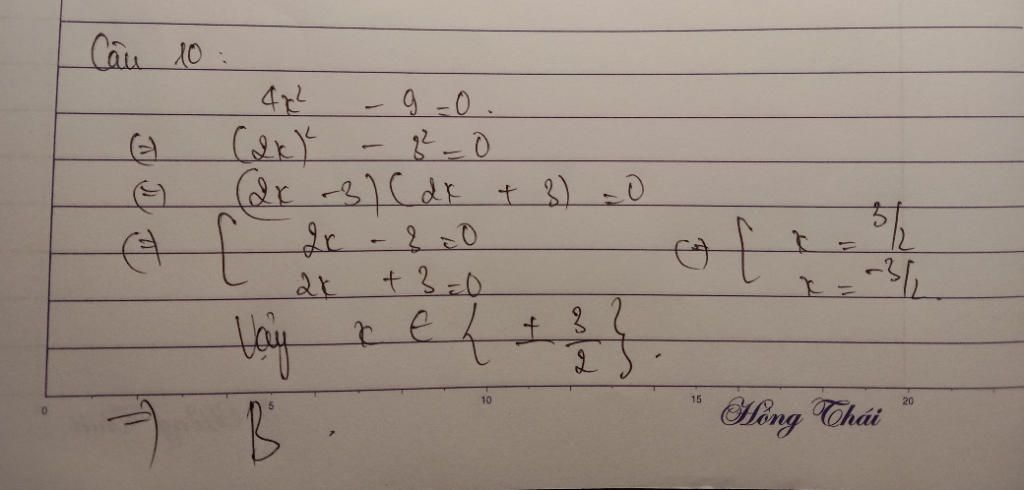 Câu 10:
4x² - 9 = 0.
(=) (2x)² - 3² = 0
(=) (2x - 3)(2x + 3) = 0
(=) [ 2x - 3 = 0 (=) [ x = 3/2
2x + 3 = 0 x = -3/2.
Vậy x ∈ { ± 3/2 }.
0 5 10 15 20
Hồng Thái
=) B.